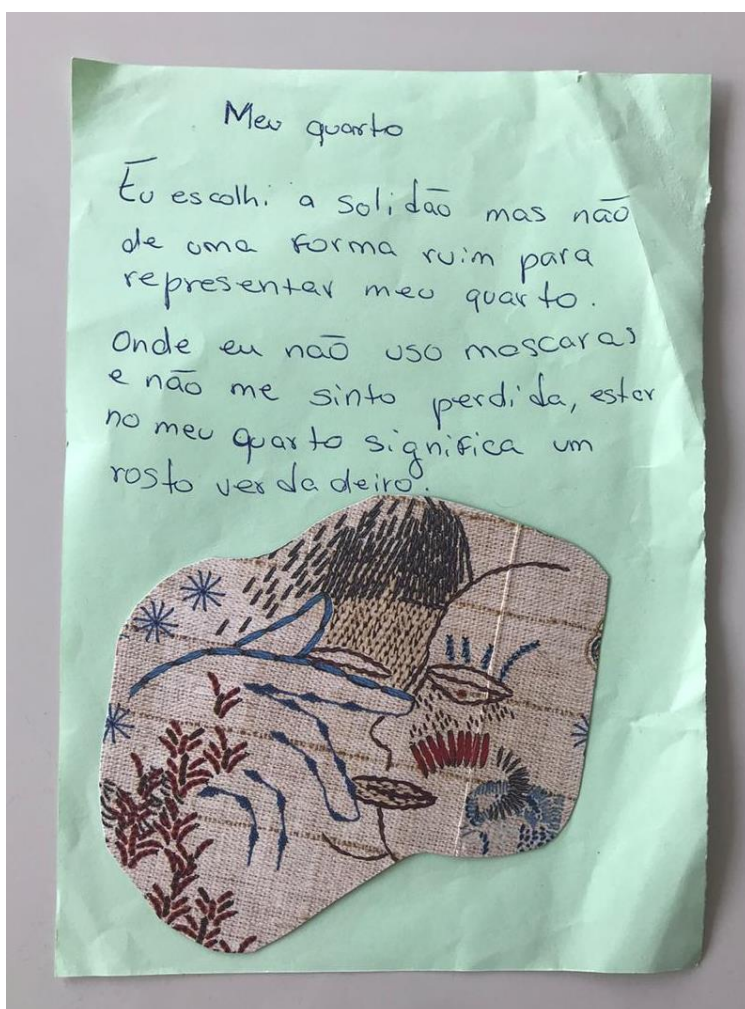 Meu quarto
Eu escolhi a solidão mas não
de uma forma ruim para
representar meu quarto.
Onde eu não uso mascaras
e não me sinto perdida, estar
no meu quarto significa um
rosto verdadeiro.